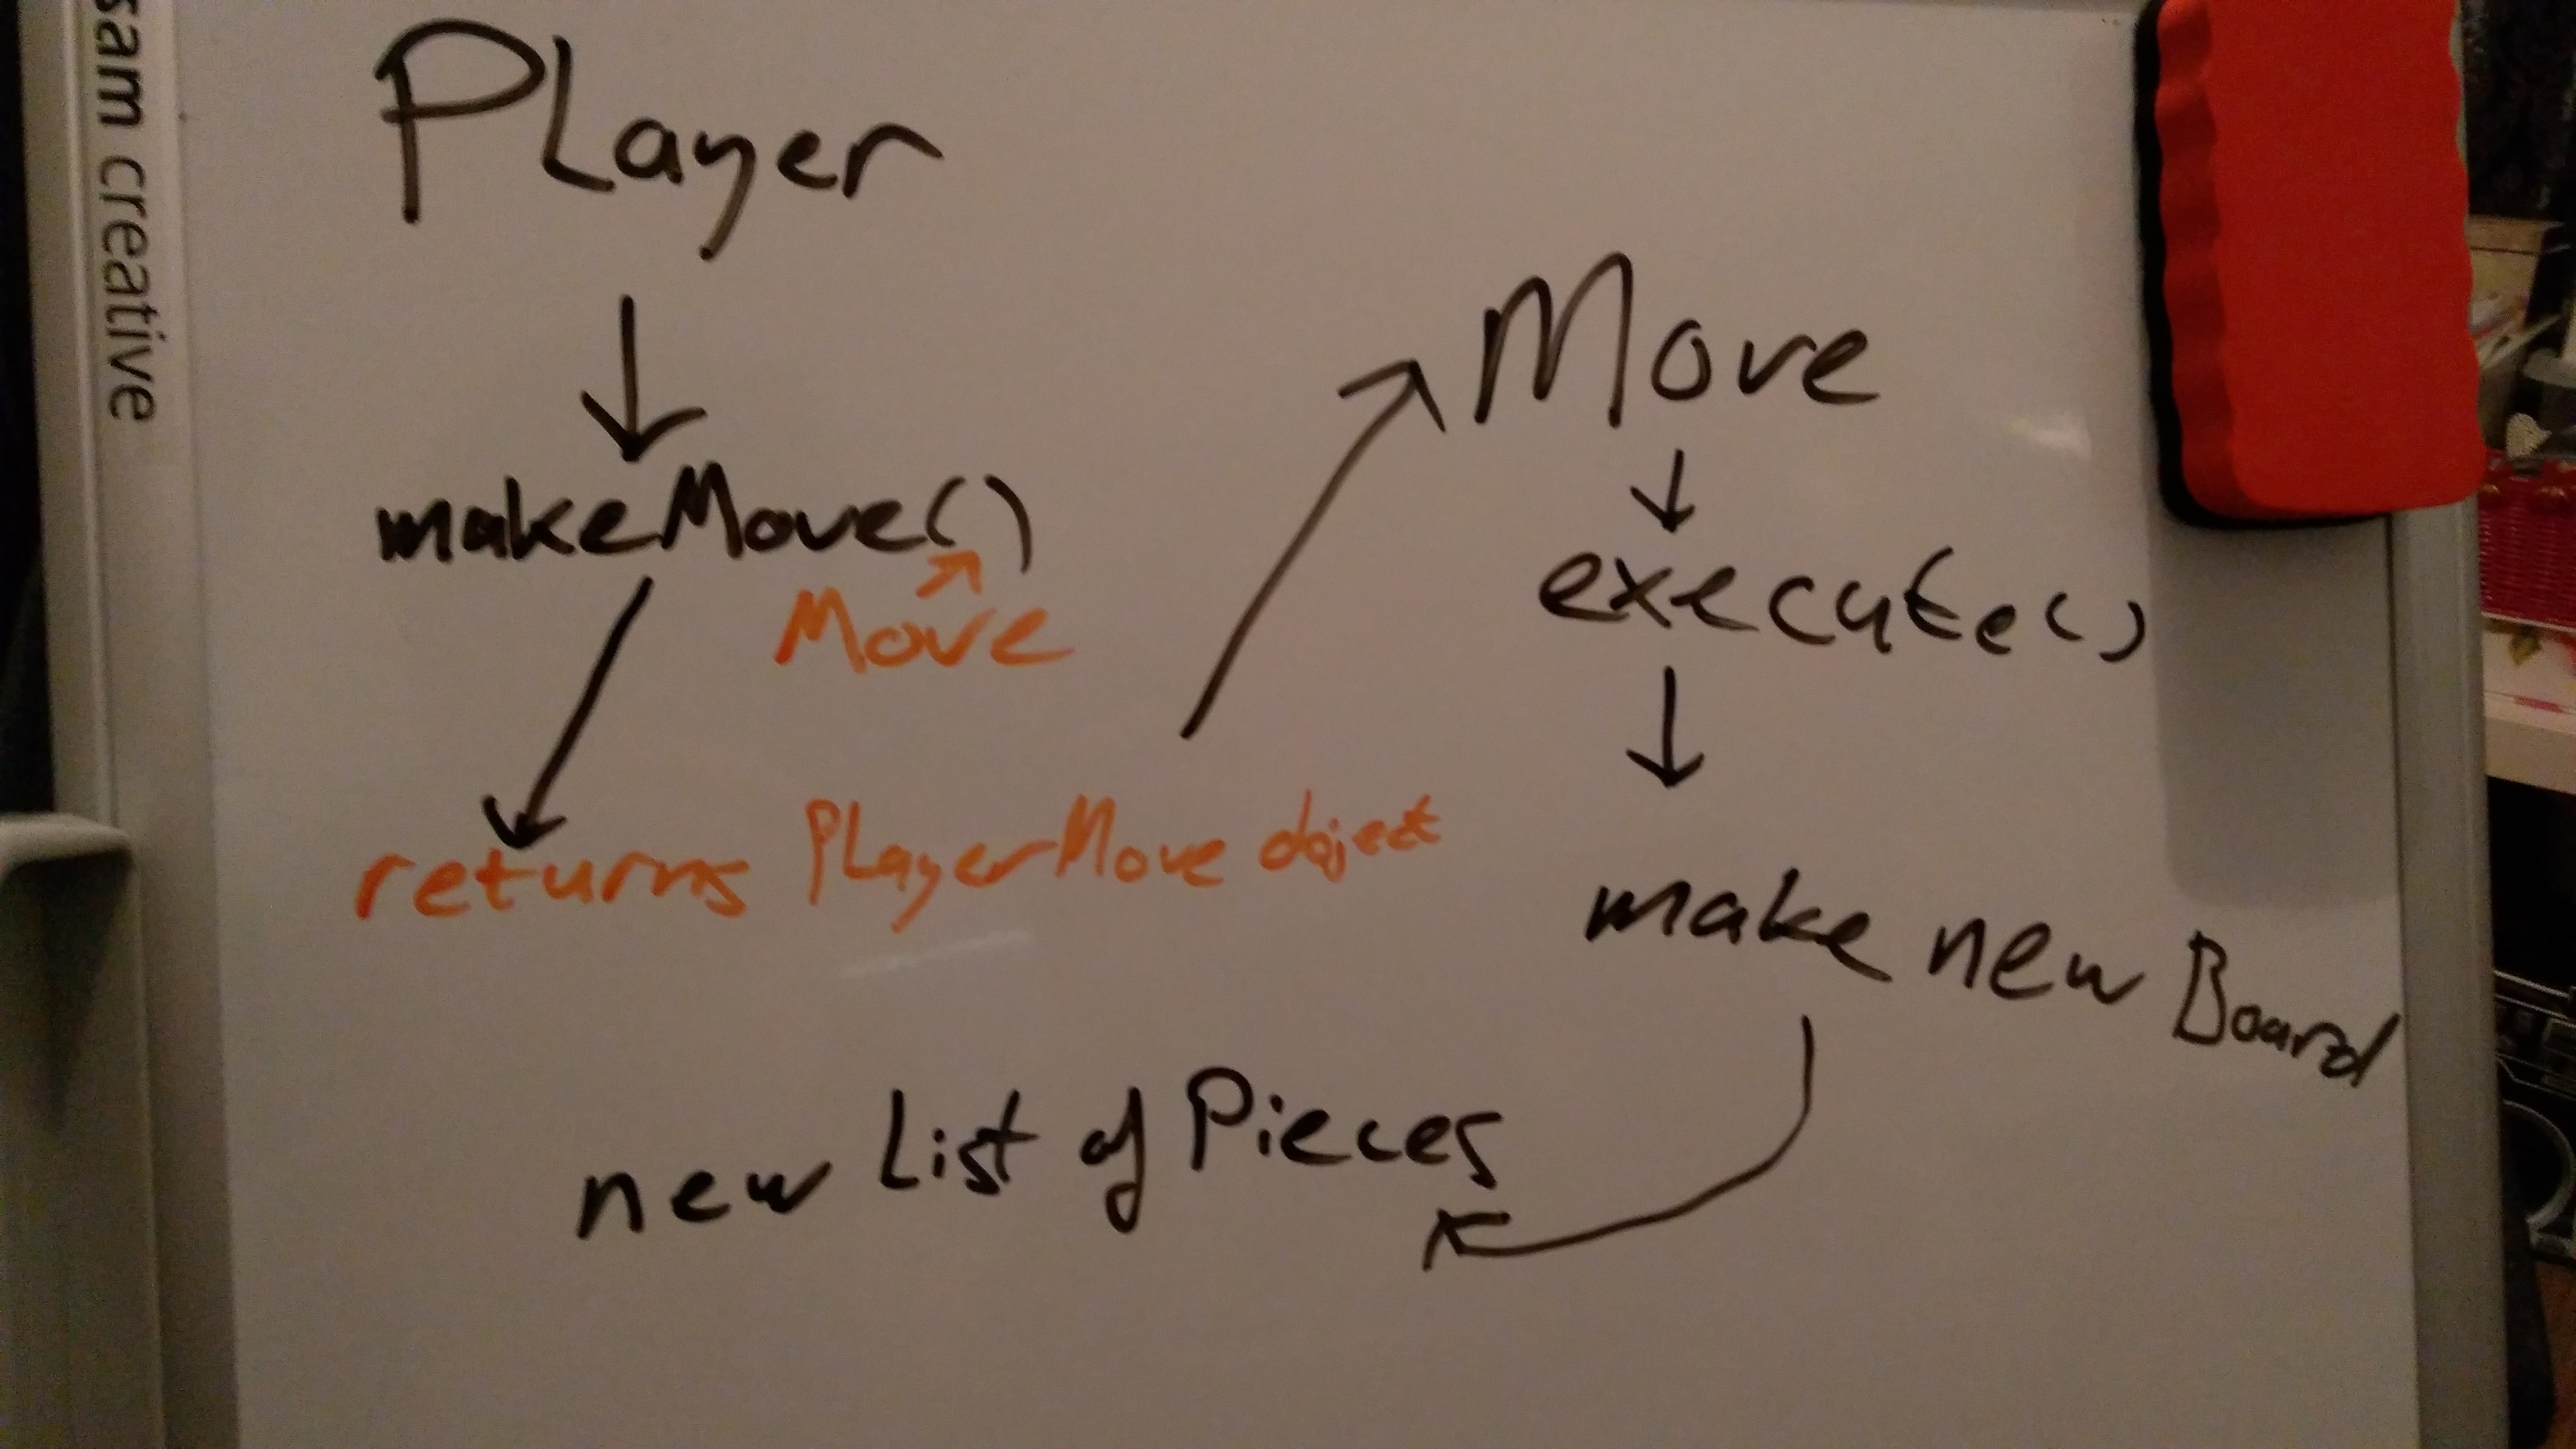 sam creative
PLayer
makeMove()
Move
returns PLayerMove object
Move
execute()
make new Board
new List of Pieces